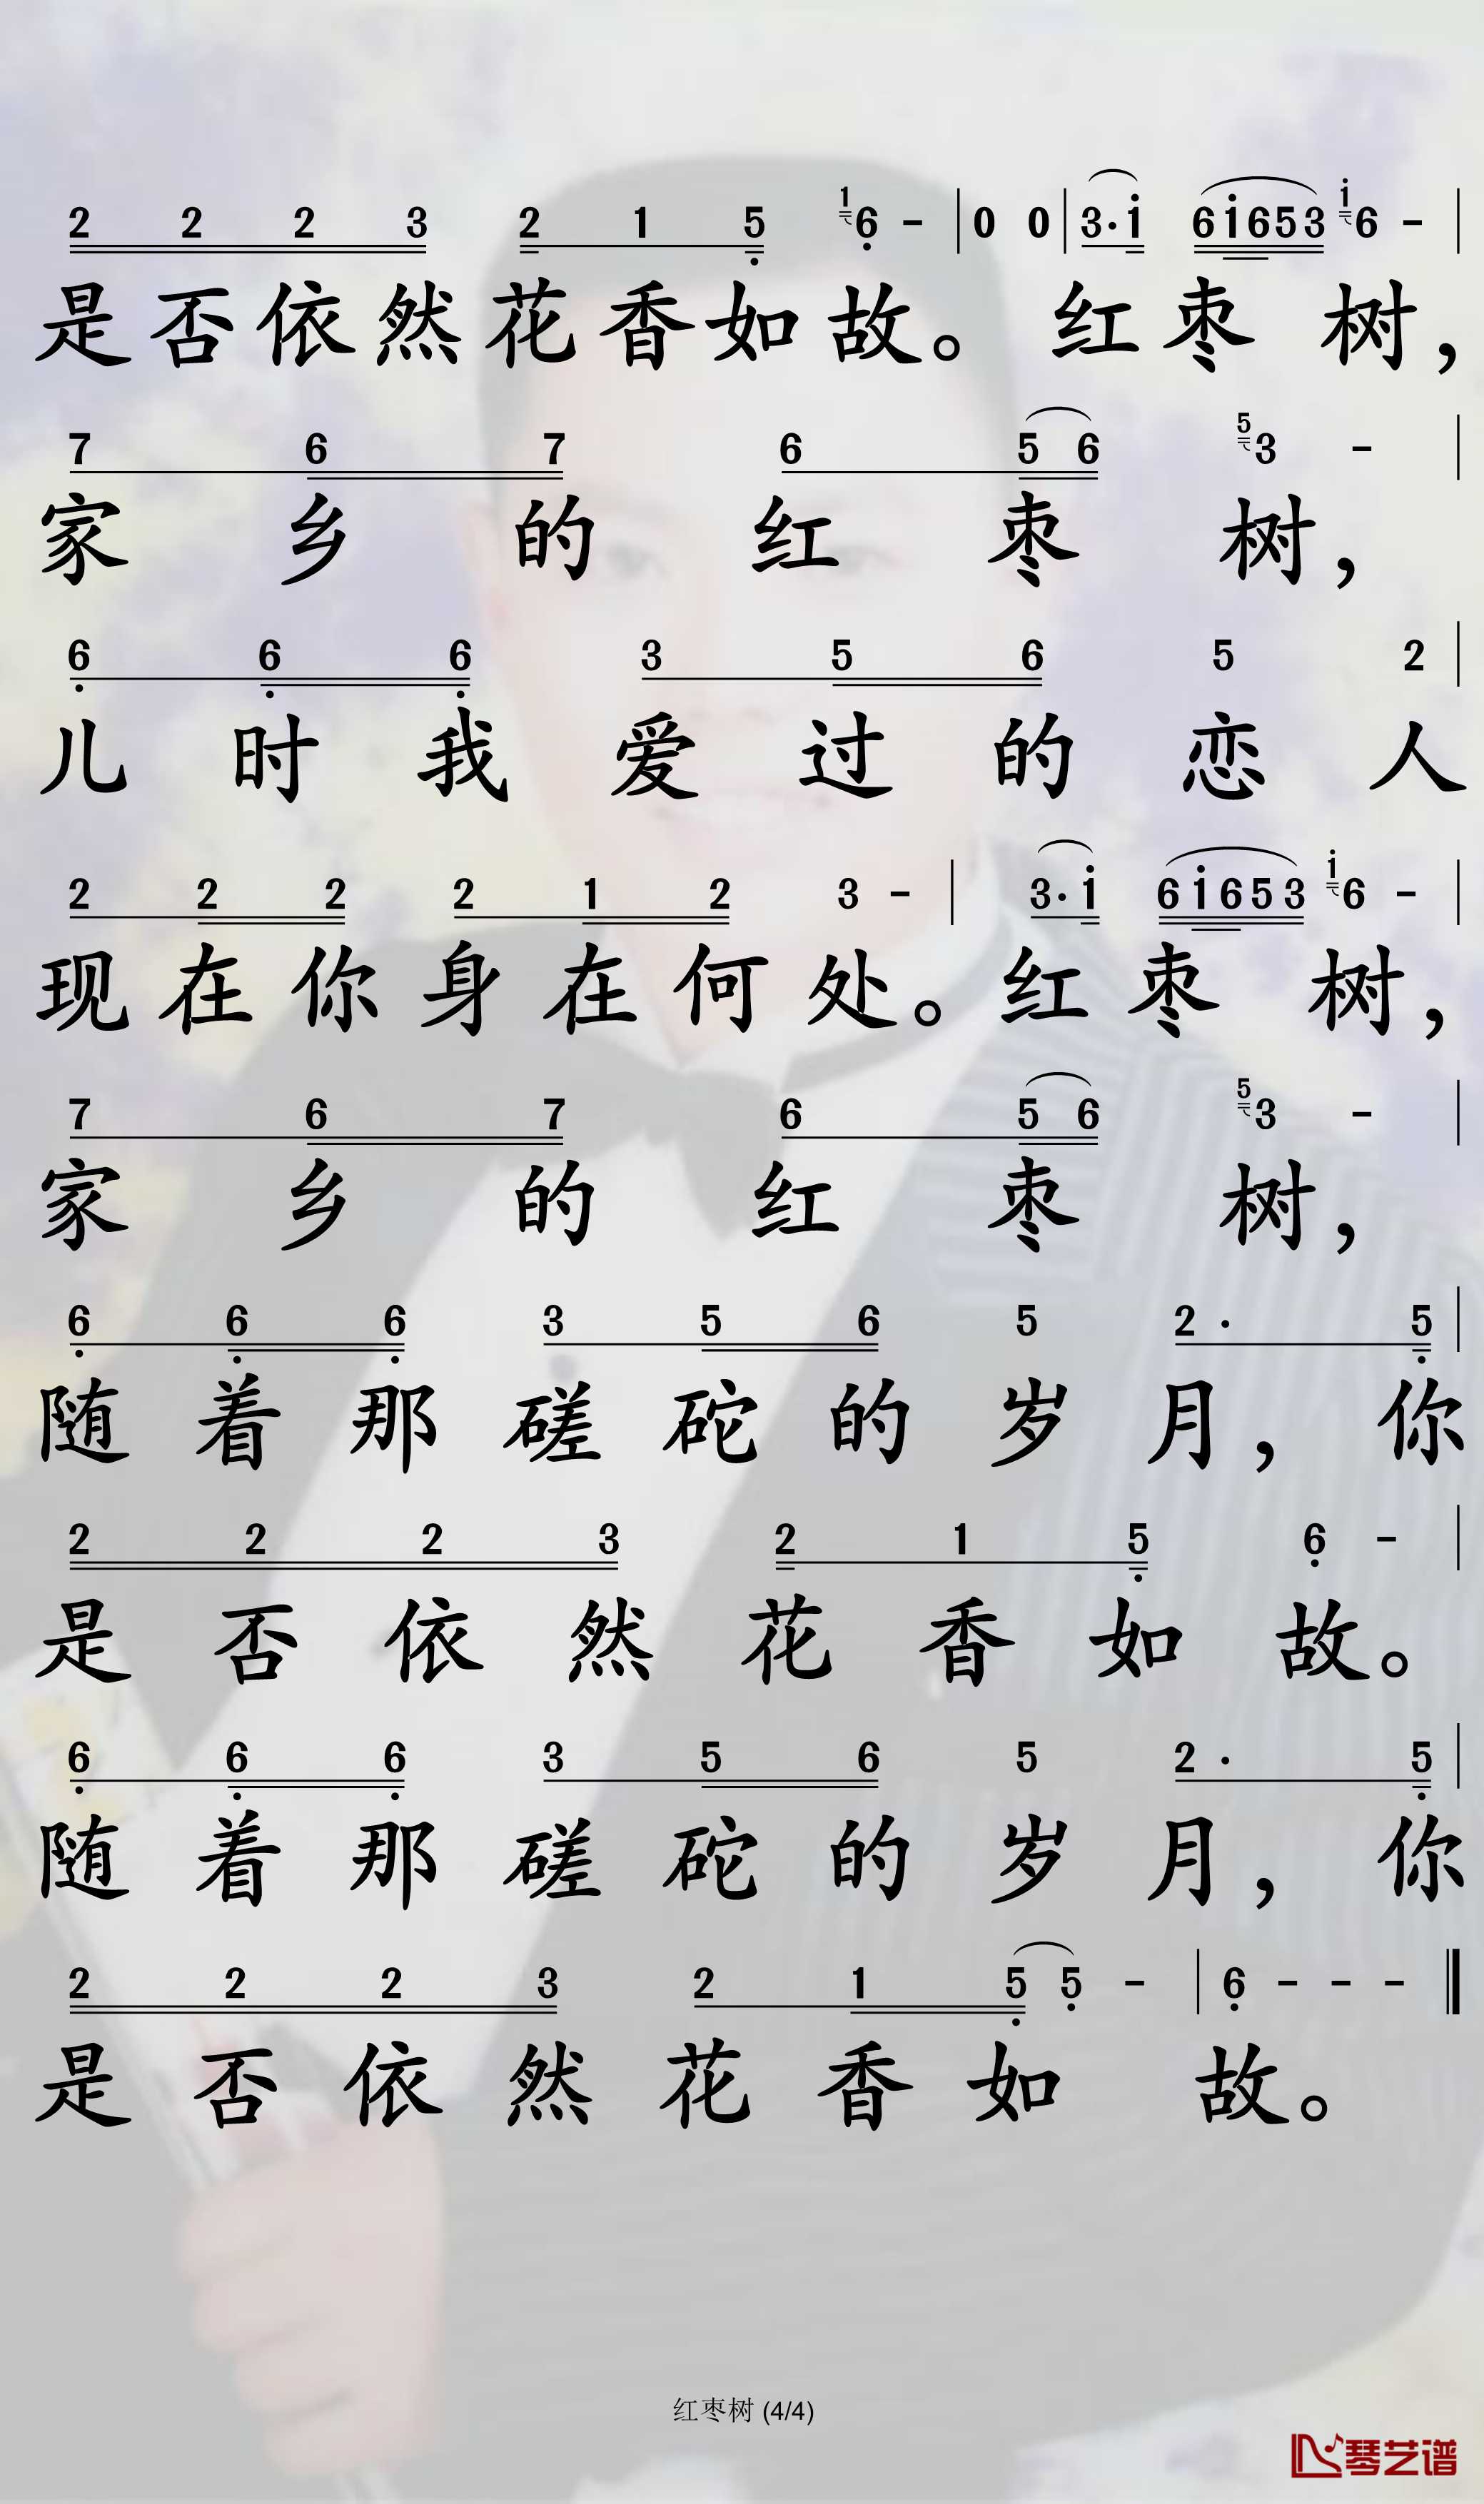 2 2 2 3 2 1 5 1 6 - | 0 0 | 3· 1 6 1 6 5 3 1 6 - |
是否依然花香如故。红枣树，
7 6 7 6 5 6 5 3 - |
家乡的红枣树，
6 6 6 3 5 6 5 2 |
儿时我爱过的恋人
2 2 2 2 1 2 3 - | 3· 1 6 1 6 5 3 1 6 - |
现在你身在何处。红枣树，
7 6 7 6 5 6 5 3 - |
家乡的红枣树，
6 6 6 3 5 6 5 2· 5 |
随着那磋砣的岁月，你
2 2 2 3 2 1 5 6 - |
是否依然花香如故。
6 6 6 3 5 6 5 2· 5 |
随着那磋砣的岁月，你
2 2 2 3 2 1 5 5 - | 6 - - - ‖
是否依然花香如故。
红枣树 (4/4)
琴艺谱